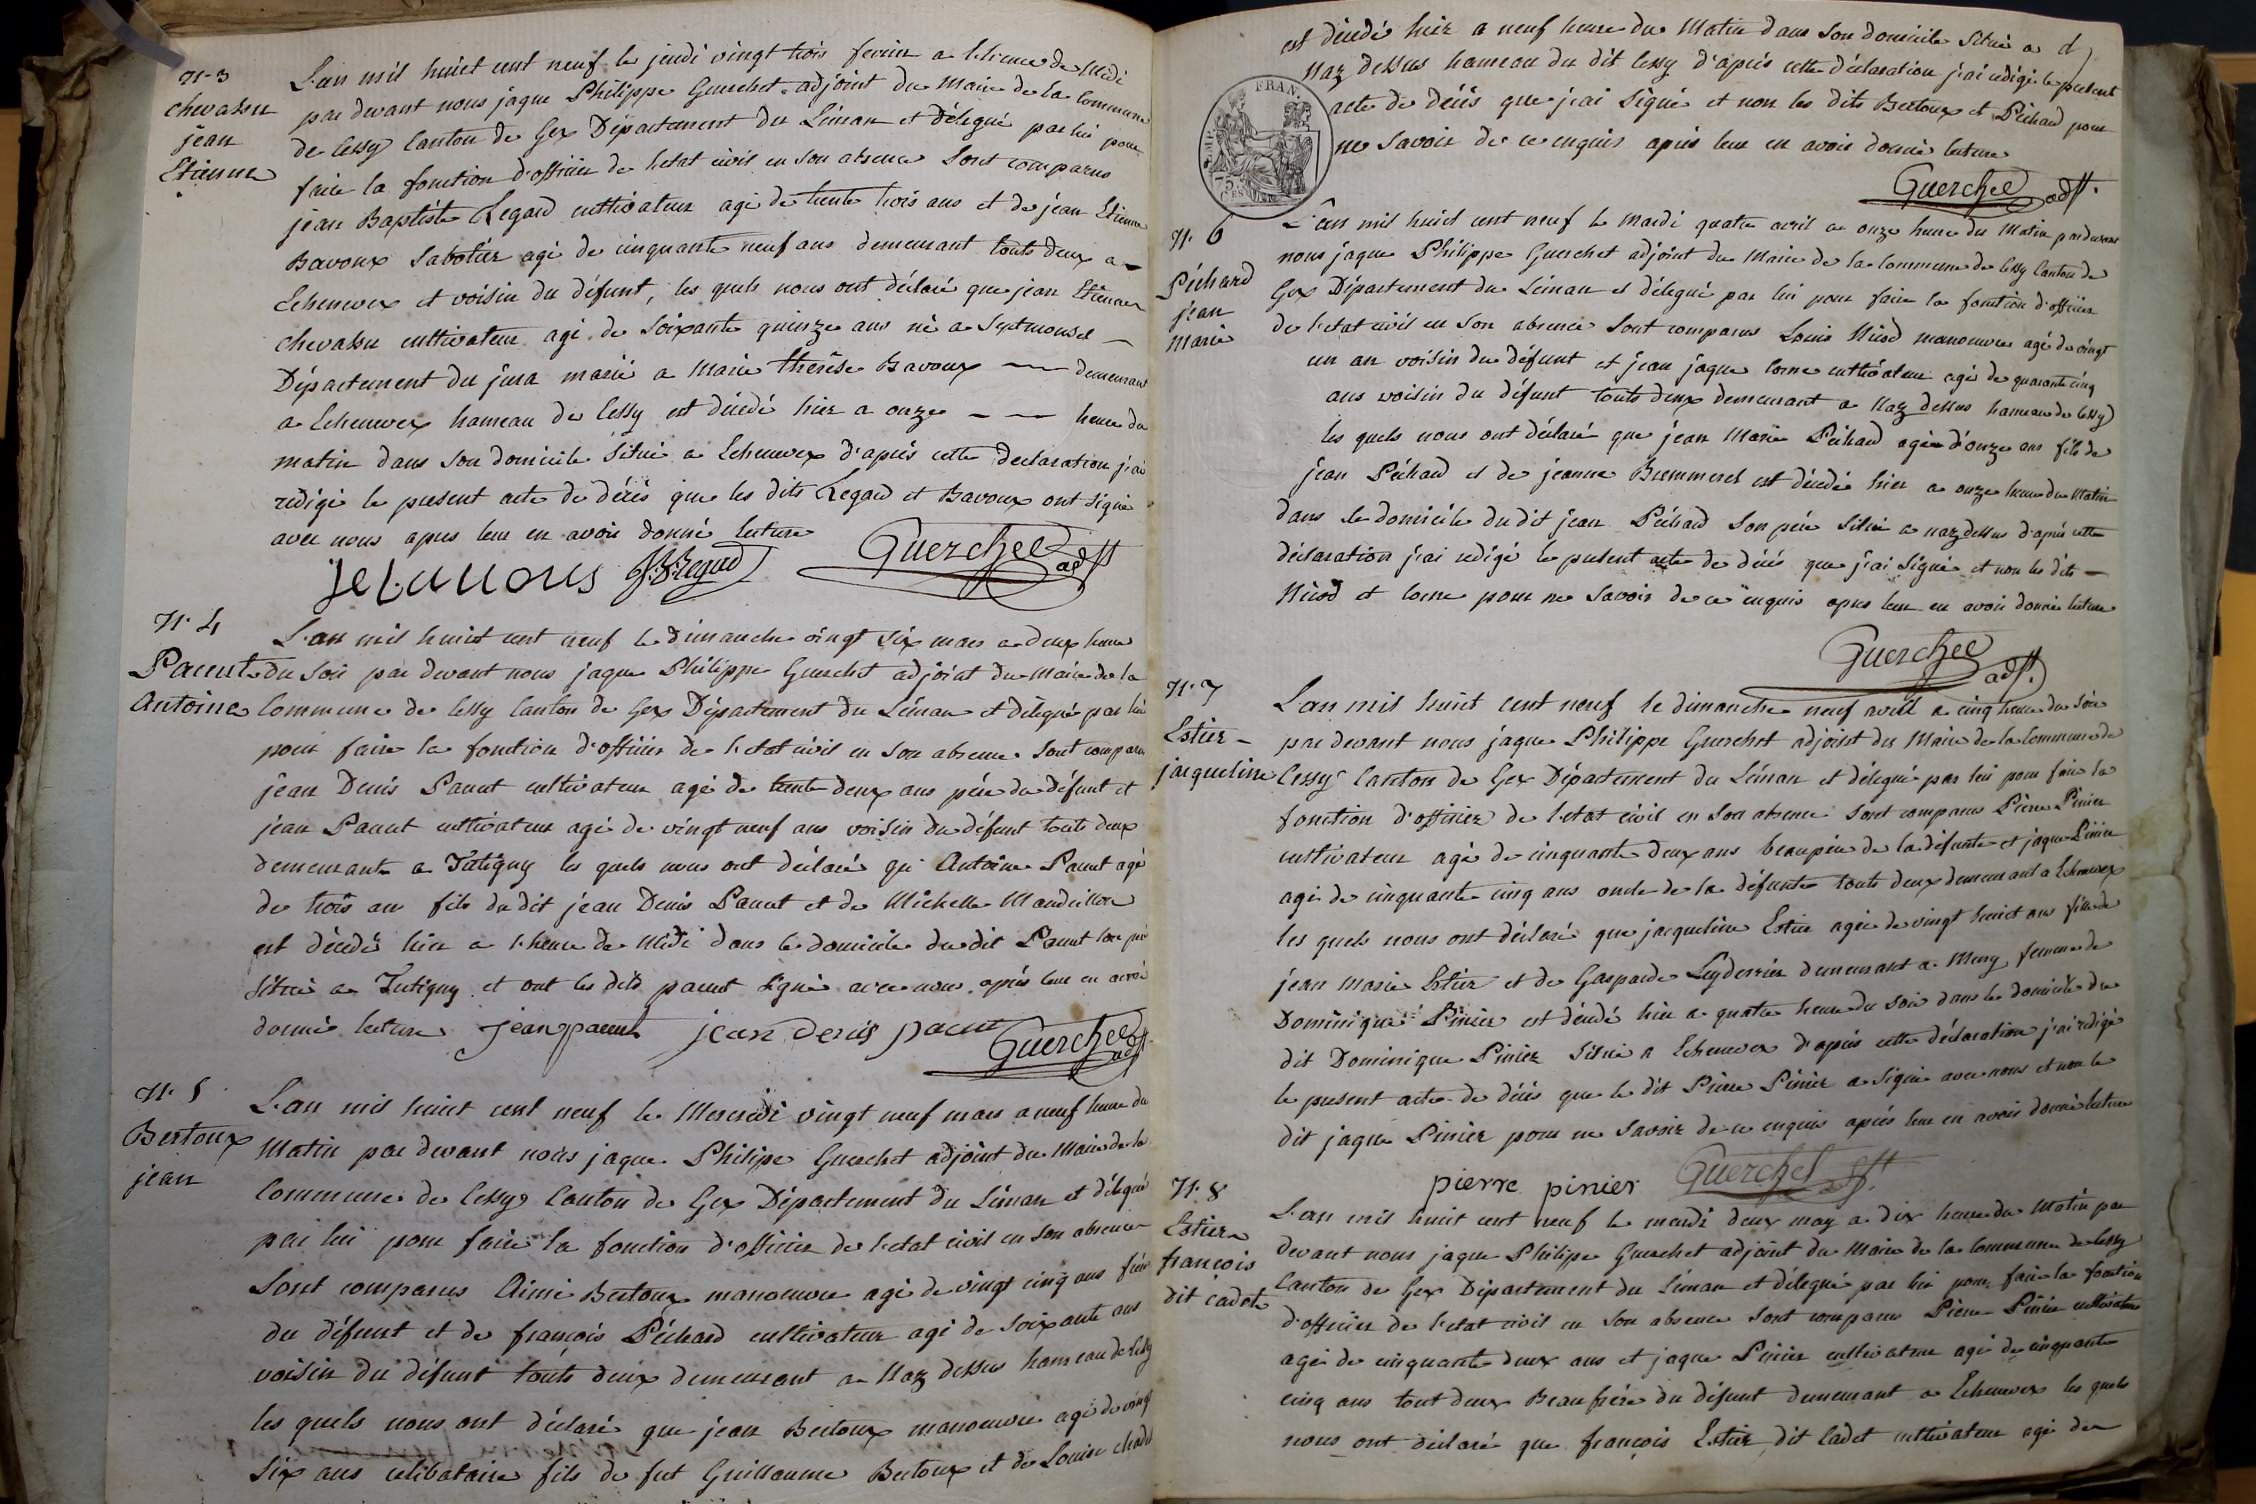 N. 3
chevassu
jean
Etienne
L'an mil huict cent neuf le jeudi vingt trois fevrier a l'heure de Midi
par devant nous jaque Philippe Guerchet adjoint du Maire de la Commune
de Cessy Canton de Gex Département du Léman et délegué par lui pour
faire la fonction d'officier de l'etat civil en son absence sont comparus
jean Baptiste Regard cultivateur agé de trente trois ans et de jean Etienne
Bavoux sabotier agé de cinquante neuf ans demeurant touts deux a
Echenevex et voisin du défunt, les quels nous ont déclaré que jean Etienne
chevassu cultivateur agé de soixante quinze ans né a Septmoncel
Département du jura marié a Marie thérèse Bavoux demeurant
a Echenevex hameau de Cessy est décedé hier a onze heure du
matin dans son domicile situé a Echenevex d'après cette declaration j'ai
redigé le present acte de décès que les dits Regard et Bavoux ont signé
avec nous apres leur en avoir donné lecture
J B Regard Guerchet adjt
N. 4
Pacut
Antoine
L'an mil huict cent neuf le Dimanche vingt six mars a deux heure
du soir par devant nous jaque Philippe Guerchet adjoint du Maire de la
Commune de Cessy Canton de Gex Département du Léman et délegué par lui
pour faire la fonction d'officier de l'etat civil en son absence sont comparu
jean Denis Pacut cultivateur agé de trente deux ans père du défunt et
jean Pacut cultivateur agé de vingt neuf ans voisin du défunt touts deux
demeurant a Tutigny les quels nous ont déclaré qu' Antoine Pacut agé
de trois an fils du dit jean Denis Pacut et de Michelle Mandrillon
est décedé hier a l'heure de Midi dans le domicile du dit Pacut son pere
situé a Tutigny et ont les dits pacut signé avec nous après leur en avoir
donné lecture jean pacut jean denis pacut Guerchet adjt
N. 5
Bertoux
jean
L'an mil huict cent neuf le Mercredi vingt neuf mars a neuf heure du
Matin par devant nous jaque Philipe Guerchet adjoint du Maire de la
Commune de Cessy Canton de Gex Département du Léman et délegué
par lui pour faire la fonction d'officier de l'etat civil en son absence
sont comparus Aimé Bertoux manoeuvre agé de vingt cinq ans frère
du défunt et de françois Péchard cultivateur agé de soixante ans
voisin du défunt touts deux demeurant a Naz dessus hameau de Cessy
les quels nous ont déclaré que jean Bertoux manoeuvre agé de vingt
six ans celibataire fils de fut Guillaume Bertoux et de Louise
est décedé hier a neuf heure du Matin dans son domicile situé a d
Naz dessus hameau du dit Cessy d'après cette déclaration j'ai redigé le present
acte de décès que j'ai signé et non les dits Bertoux et Péchard pour
ne savoir de ce enquis après leur en avoir donné lecture
FRAN.
Guerchet adjt.
N. 6
Péchard
jean
Marie
L'an mil huict cent neuf le mardi quatre avril a onze heure du Matin par devant
nous jaque Philippe Guerchet adjoint du Maire de la Commune de Cessy Canton de
Gex Département du Léman et délegué par lui pour faire la fonction d'officier
de l'etat civil en son absence sont comparus Louis Nicod manoeuvre agé de vingt
un an voisin du défunt et jean jaque Corne cultivateur agé de quarante cinq
ans voisin du défunt touts deux demeurant a Naz dessus hameau de Cessy
les quels nous ont déclaré que jean Marie Péchard agé d'onze ans fils de
jean Péchard et de jeanne est décedé hier a onze heure du Matin
dans le domicile du dit jean Péchard son père situé a naz dessus d'après cette
déclaration j'ai redigé le present acte de décès que j'ai signé et non les dits
Nicod et Corne pour ne savoir de ce enquis apres leur en avoir donné lecture
Guerchet adjt.
N. 7
Estier
jacqueline
L'an mil huict cent neuf le dimanche neuf avril a cinq heure du soir
par devant nous jaque Philippe Guerchet adjoint du Maire de la Commune de
Cessy Canton de Gex Département du Léman et délegué par lui pour faire la
fonction d'officier de l'etat civil en son absence sont comparus Pierre Pinier
cultivateur agé de cinquante deux ans beaupère de la défunte et jaque Pinier
agé de cinquante cinq ans oncle de la défunte touts deux demeurant a Echenevex
les quels nous ont déclaré que jacqueline Estier agée de vingt huict ans fille de
jean Marie Estier et de Gasparde demeurant a femme de
Dominique Pinier est décedé hier a quatre heure du soir dans le domicile du
dit Dominique Pinier situé a Echenevex d'après cette déclaration j'ai redigé
le present acte de décès que le dit Pierre Pinier a signé avec nous et non le
dit jaque Pinier pour ne savoir de ce enquis après leur en avoir donné lecture
pierre pinier Guerchet adjt.
N. 8
Estier
françois
dit cadet
L'an mil huict cent neuf le mardi deux may a dix heure du Matin par
devant nous jaque Philippe Guerchet adjoint du Maire de la Commune de Cessy
Canton de Gex Département du Léman et délegué par lui pour faire la fonction
d'officier de l'etat civil en son absence sont comparus Pierre Pinier cultivateur
agé de cinquante deux ans et jaque Pinier cultivateur agé de cinquante
cinq ans tout deux Beaufrère du défunt demeurant a Echenevex les quels
nous ont déclaré que françois Estier dit Cadet cultivateur agé de